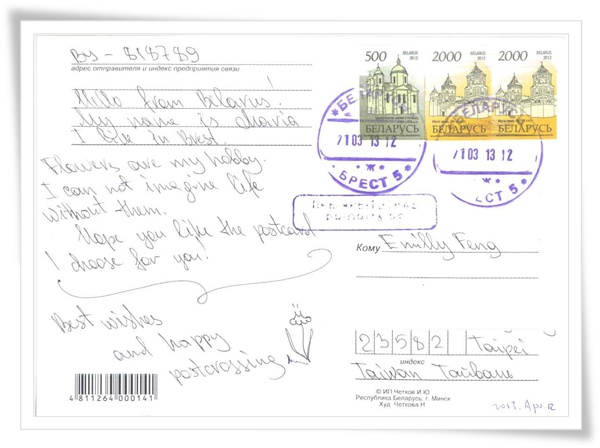 By - 818789
адрес отправителя и индекс предприятия связи
Hello from Belarus!
My name is Maria
I live in Brest.
Flowers are my hobby.
I can not imagine life
without them.
Hope you like the postcard
I choose for you.
Best wishes
and happy
postcrossing
4 811264 000141
500 BELARUS 2012
БЕЛАРУСЬ
2000 BELARUS 2012
БЕЛАРУСЬ
2000 BELARUS 2012
БЕЛАРУСЬ
БЕЛАРУСЬ
21 03 13 12
* Ж *
БРЕСТ 5
БЕЛАРУСЬ
21 03 13 12
СТ 5
PRIORITAIRE
Кому Emilly Feng
23582 Taipei
индекс
Taiwan Тайвань
© ИП Четков И.Ю
Республика Беларусь, г. Минск
Худ. Четкова Н
2013. Apr. 12